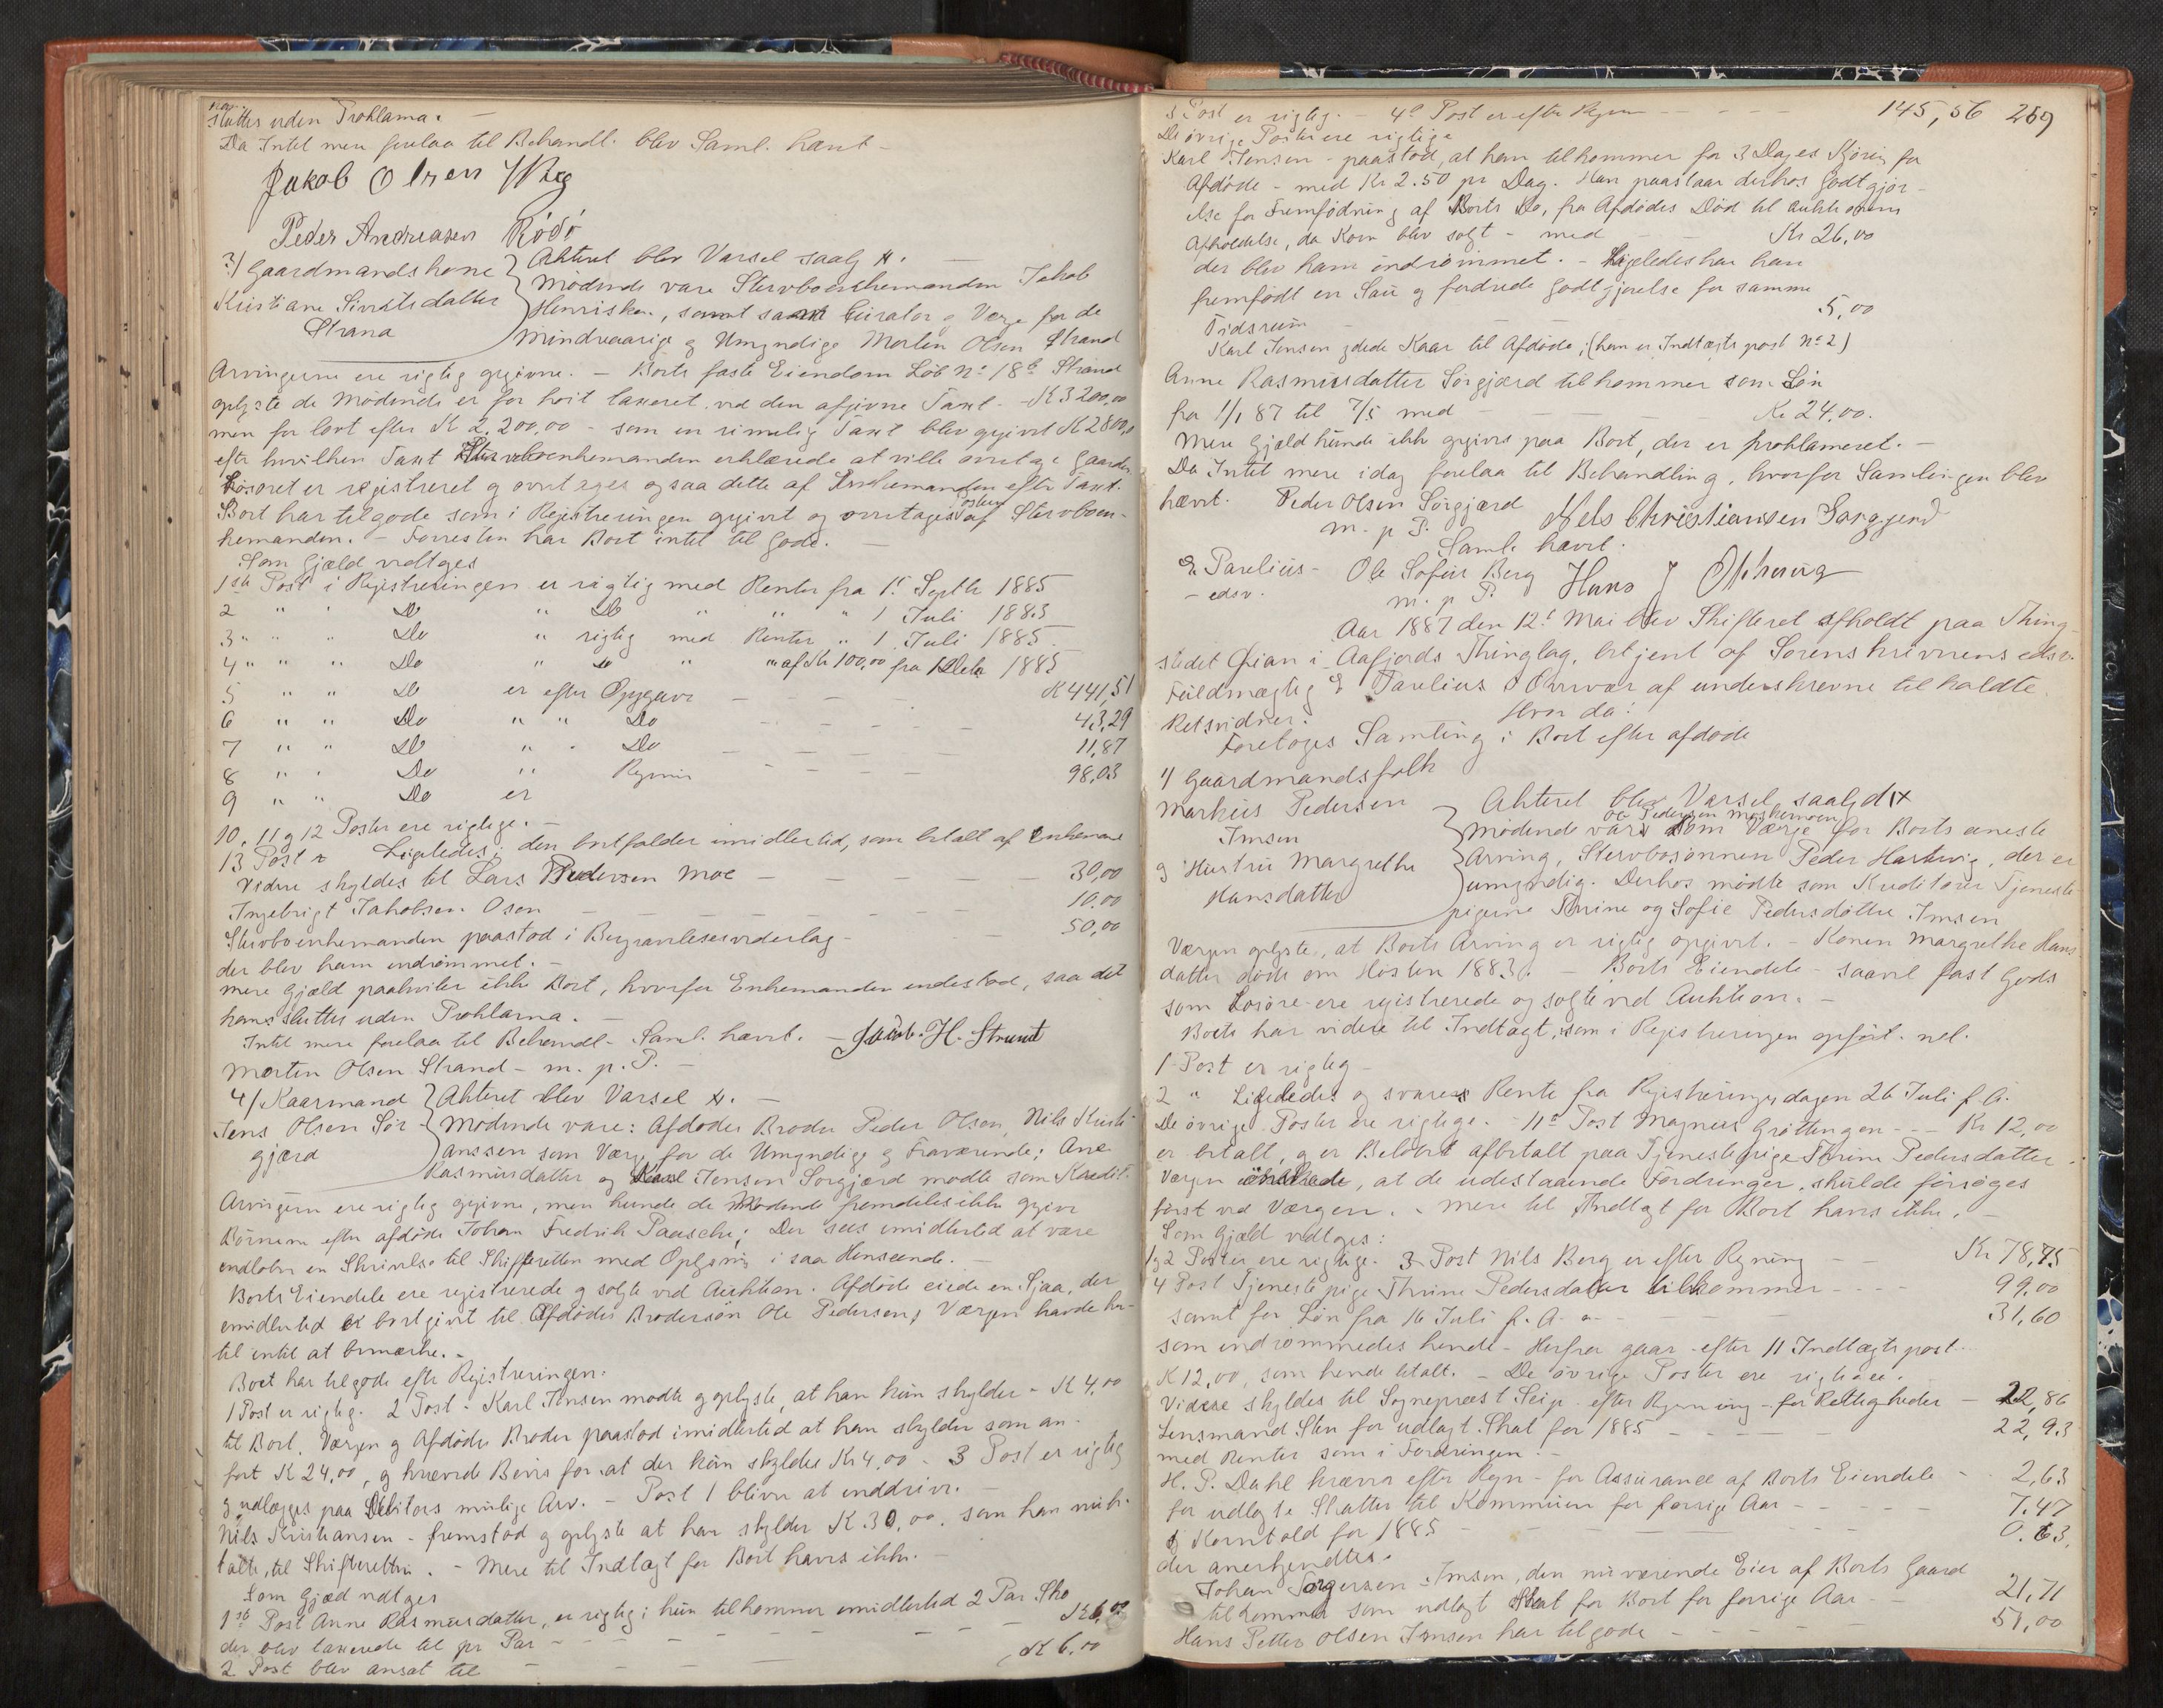 sluttes uden Proklama. -
Da Intet mere forelaa til Behandl. blev Saml. hævt -
Jakob Olsen
Peder Andreasen Rödö
3/ Gaardmandskone
Kristiane Sivertsdatter
Strand
Akteret blev Varsel saalyd.
Mødende vare Stervboenkemanden Jakob
Henriksen, samt som Curator og Værge for de
mindreaarige og Umyndige Morten Olsen Strand
Arvingerne ere rigtig opgivne. - Boets faste Eiendom Löb No 18b Strand
oplyste de Mødende er for høit taxeret ved den afgivne Taxt - K 3200,00
men for lavt efter Kr 2,200,00 - som en rimelig Taxt blev opgivet K 2800,0
efter hvilken Taxt Stervboenkemanden erklærede at ville overtage Gaarden
Løsøret er registreret og overtages ogsaa dette af Enkemanden efter Taxt.
Boet har tilgode som i Registreringen opgivet og overtages Posterne af Stervboen-
kemanden. - Forresten har Boet intet til Gode. -
Som Gjæld vedtoges
1ste Post i Registreringen er rigtig med Renter fra 1 Septbr 1885
2 " " Do " Do " " " 1 Juli 1885
3 " " " Do " rigtig med Renter " 1 Juli 1885.
4 " " " Do " Do " " af Kr 100,00 fra 1 Decbr 1885
5 " " Do er efter Opgave - - - K 441,51
6 " " Do " " Do - - - 43,29
7 " " Do " " Do - - - 11,87
8 " " Do " Regning - - - 98,03
9 " " Do er
10, 11 og 12 Poster ere rigtige. -
13 Post Ligeledes; den bortfalder imidlertid, som betalt af Enkemand
Videre skyldes til Lars Pedersen Moe - - - 30,00
Ingebrigt Jakobsen Osen - - - 10,00
Stervboenkemanden paastod i Begravelsesvederlag - - 50,00
der blev ham indrømmet. -
Mere Gjæld paahviler ikke Boet, hvorfor Enkemanden indestod, saa det
kans sluttes uden Proklama. -
Intet mere forelaa til Behandl. Saml. hævet. - Jacob. H. Strand
Morten Olsen Strand - m. p. P. -
4/ Kaarmand
Jens Olsen Sör-
gjærd
Akteret blev Varsel. -
Mødende vare: Afdødes Broder Peder Olsen, Nils Kristi-
anssen som Værge for de Umyndige og Fraværende; Ane
Rasmusdatter og Karl Jensen Sørgjærd mødte som Kredit.
Arvingerne ere rigtig opgivne, men kunde de Mødende fremdeles ikke opgive
Børnene efter afdøde Johan Fredrik Paasche; Der sees imidlertid at være
indløbet en Skrivelse til Skifteretten med Oplysning i saa Henseende. -
Boets Eiendele ere registrerede og solgte ved Auktion. Afdøde eiede en Sjaa, der
imidlertid er bortgivet til Afdødes Brodersøn Ole Pedersen; Værgen havde her-
til intet at bemærke. -
Boet har tilgode efter Registreringen.
1 Post er rigtig. 2 Post - Karl Jensen mødte og oplyste, at han kun skylder - K 4,00
til Boet. Værgen og Afdødes Broder paastod imidlertid at han skylder som an-
ført K 24,00, og krævede Bevis for at der kun skyldes Kr 4,00 - 3 Post er rigtig
og udlægges paa Debitors mulige Arv. - Post 1 bliver at inddrive. -
Nils Kristiansen - fremstod og oplyste at han skylder K 30,00. som han
talte, til Skifteretten. - Mere til Indtægt for Boet haves ikke. -
Som Gjæld vedtoges
1ste Post Anne Rasmusdatter, er rigtig; hun tilkommer imidlertid 2 Par Sko
der blev taxerede til pr Par - - - K 6,00
2 Post blev ansat til - - - K 6.00
3 Post er rigtig. - 4de Post er efter Regn - - - 145,56 259
De øvrige Poster ere rigtige
Karl Jensen - paastod, at han tilkommer for 3 Dages Kjøring for
Afdøde - med Kr 2.50 pr Dag. Han paastaar derhos Godtgjør-
else for Fremfødning af Boets Ko, fra Afdødes Død til Auktionens
Afholdelse, da Koen blev solgt - med - - Kr 26,00
der blev ham indrømmet. - Ligeledes har han
fremfødt en Sau og fordrede Godtgjørelse for samme
Tidsrum - - - 5,00
Karl Jensen ydede Kaar til Afdøde; (han er Indtægts post No 2)
Anne Rasmusdatter Sørgjærd tilkommer som Løn
fra 1/1 87 til 7/5 med - - - Kr 24,00.
Mere Gjæld kunde ikke opgives paa Boet, der er proklameret. -
Da Intet mere idag forelaa til Behandling, hvorfor Samlingen blev
hævet. Peder Olsen Sørgjærd Nels Christiansen Sørgjerd
m. p P.
Saml. hævet.
E. Parelius - Ole Sofus Berg Hans J
- edsv. m. p P.
Aar 1887 den 12te Mai blev Skifteret afholdt paa Thing-
stedet Øian i Aafjords Thinglag, betjent af Sorenskriverens edsv.
Fuldmægtig E Parelius i Overvær af underskrevne tilkaldte
Retsvidner. Hvor da:
Foretoges Samling i Boet efter afdøde
1/ Gaardmandsfolk
Markus Pedersen
Imsen
og Hustru Margrethe
Hansdatter
Akteret blev Varsel saalyd.
Ole Pedersen
Mødende vare som Værge for Boets eneste
Arving, Stervbosønnen Peder Hartvig, der er
umyndig. Derhos mødte som Kreditorer Tjeneste-
pigerne Thrine og Sofie Pedersdøttre Imsen
Værgen oplyste, at Boets Arving er rigtig opgivet. - Konen Margrethe Hans
datter døde om Høsten 1883. - Boets Eiendele - saavel fast Gods
som Løsøre ere registrerede og solgte ved Auktion. -
Boets har videre til Indtægt, som i Registreringen opført. nel.
1 Post er rigtig -
2 " Ligeledes og svares Rente fra Registreringsdagen 26 Juli f. A.
De øvrige Poster ere rigtige. - 11te Post Magnus Grøttingen - - - Kr 12,00
er betalt, og er Beløbet afbetalt paa Tjenestepige Thrine Pedersdatter.
Værgen ønskede, at de udestaaende Fordringer skulde forsøges
først ved Værgen. - Mere til Indtægt for Boet haves ikke. -
Som Gjæld vedtoges:
1 og 2 Poster ere rigtige. 3 Post Nils Berg er efter Regning - - Kr 78,75
4 Post Tjenestepige Thrine Pedersdatter tilkommer - - - 99,00
samt for Løn fra 16 Juli f. A. - - - 31,60
som indrømmedes hende - Herfra gaar efter 11 Indtægts post
K 12,00, som hende betalt. - De øvrige Poster ere rigtige.
Videre skyldes til Sogneprest Seip efter Regning - for Rettigheder - 22,86
Lensmand Sten for udlagt Skat for 1885 - - - 22,93
med Renter som i Fordringen. -
H. P. Dahl kræver efter Regn - for Assurance af Boets Eiendele - 2,63
for udlagte Skatter til Kommunen for forrige Aar - - - 7.47
og Korntold for 1885 - - - 0.63,
der anerkjendtes.
Johan Torgersen Imsen, den nuværende Eier af Boets Gaard
tilkommer som udlagt Skat for Boet for forrige Aar - - 21,71
Hans Petter Olsen Imsen har tilgode - - - 51,00